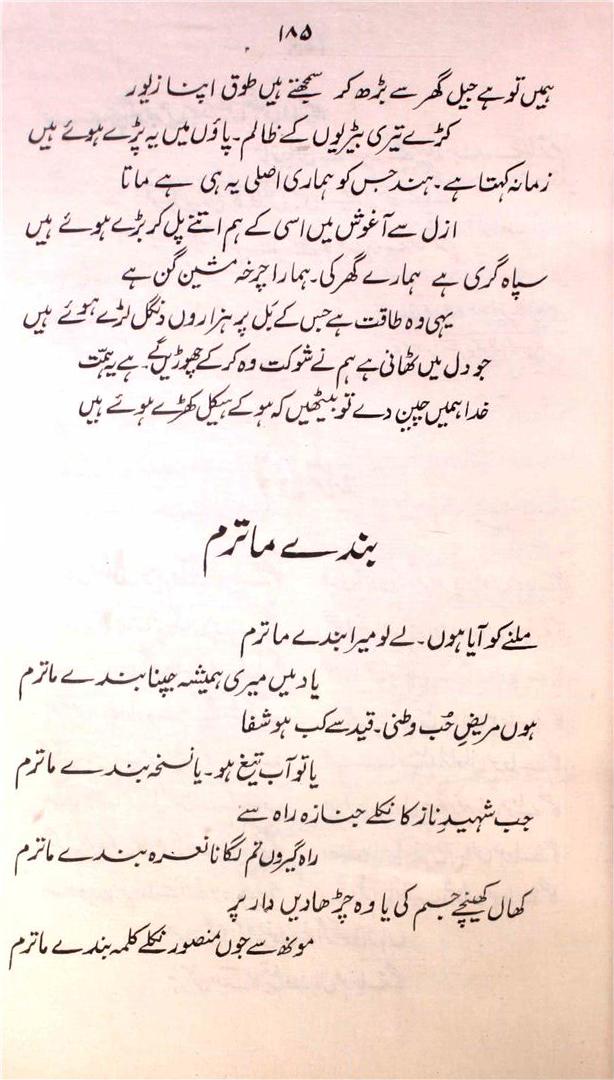 ۱۸۵
ہمیں تو ہے جیل گھر سے بڑھ کر سمجھتے ہیں طوق اپنا زیور
کڑے تیری بیڑیوں کے ظالم۔ پاؤں میں یہ پڑے ہوئے ہیں
زمانہ کہتا ہے۔ ہند جس کو ہماری اصلی یہ ہی ہے ماتا
ازل سے آغوش میں اسی کے ہم اتنے پل کر بڑے ہوئے ہیں
سپاہ گری ہے ہمارے گھر کی۔ ہمارا چرخہ مشین گن ہے
یہی وہ طاقت ہے جس کے بَل پر ہزاروں دنگل لڑے ہوئے ہیں
جو دل میں ٹھانی ہے ہم نے شوکت وہ کر کے چھوڑیں گے۔ ہے یہ ہمّت
خدا ہمیں چین دے تو بیٹھیں کہ ہو کے بیکل کھڑے ہوئے ہیں
بندے ماترم
ملنے کو آیا ہوں۔ لے لو میرا بندے ماترم
یاد میں میری ہمیشہ جپنا بندے ماترم
ہوں مریضِ حُب وطنی۔ قید سے کب ہو شفا
یا تو آب تیغ ہو۔ یا نسخہ بندے ماترم
جب شہیدِ ناز کا نکلے جنازہ راہ سے
راہ گیروں تم لگانا نعرہ بندے ماترم
کھال کھینچے جسم کی یا وہ چڑھا دیں دار پر
مونھ سے جوں منصور نکلے کلمہ بندے ماترم